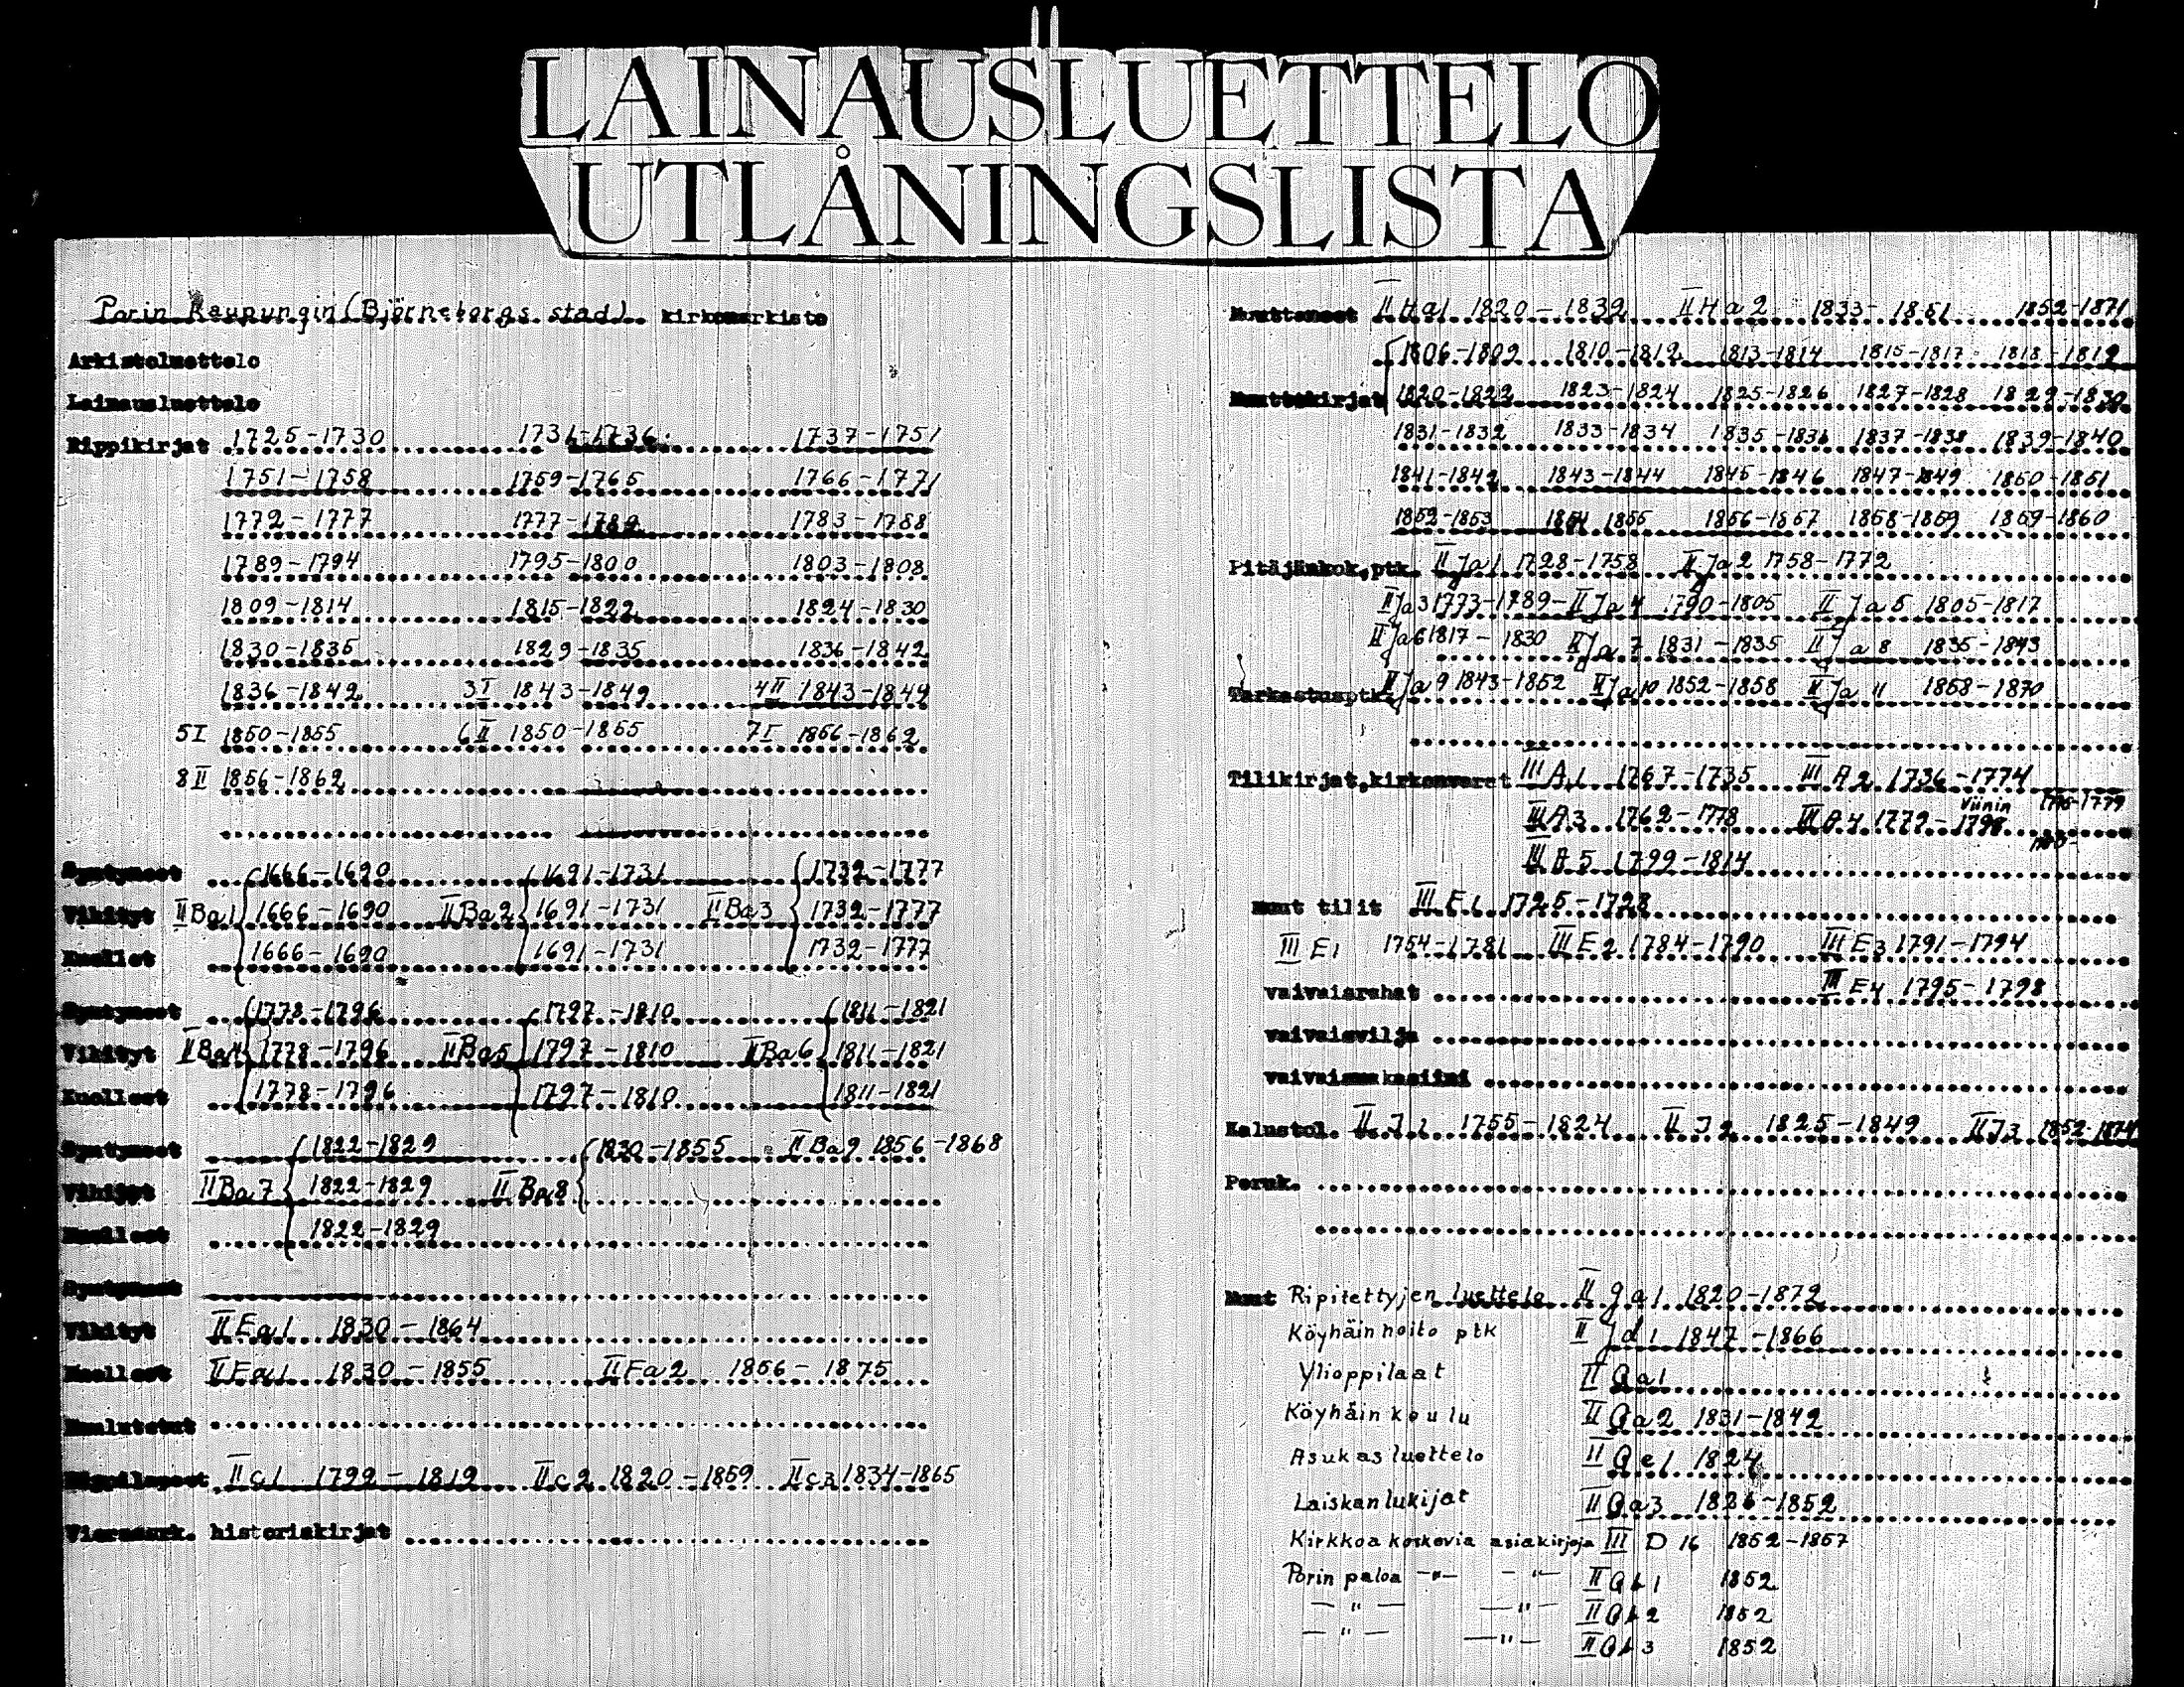 LAINAUSLUETTELO
UTLÅNINGSLISTA
Porin Kaupungin (Björneborgs stad) kirkonarkisto
Arkistoluettelo
Lainausluettelo
Rippikirjat 1725-1730 1731-1736 1737-1751
1751-1758 1759-1765 1766-1771
1772-1777 1777-1782 1783-1788
1789-1794 1795-1800 1803-1808
1809-1814 1815-1822 1824-1830
1830-1835 1829-1835 1836-1842
1836-1842 3I 1843-1849 4II 1843-1844
5I 1850-1855 6II 1850-1855 7I 1856-1862
8II 1856-1862
Syntyneet 1666-1690 1691-1731 1732-1777
Vihityt II Ba1 1666-1690 II Ba2 1691-1731 II Ba3 1732-1777
Kuollet 1666-1690 1691-1731 1732-1777
Syntyneet 1778-1796 1797-1810 1811-1821
Vihityt II Ba4 1778-1796 II Ba5 1797-1810 II Ba6 1811-1821
Kuolleet 1778-1796 1797-1810 1811-1821
Syntyneet 1822-1829 1830-1855 II Ba9 1856-1868
Vihityt II Ba7 1822-1829 II Ba8
Kuolleet 1822-1829
Syntyneet
Vihityt II Ea1 1830-1864
Kuolleet II Fa1 1830-1855 II Fa2 1856-1875
Kuulutetut
II C1 1792-1819 II C2 1820-1859 II C3 1834-1865
historiakirjat
Muuttaneet II Ha1 1820-1839 II Ha2 1833-1851 1852-1871
1806-1809 1810-1812 1813-1814 1815-1817 1818-1819
Muuttokirjat 1820-1822 1823-1824 1825-1826 1827-1828 1829-1830
1831-1832 1833-1834 1835-1836 1837-1838 1839-1840
1841-1842 1843-1844 1845-1846 1847-1849 1850-1851
1852-1853 1854 1855 1856-1857 1858-1859 1859-1860
Pitäjänkok.ptk. II Ja1 1728-1758 II Ja2 1758-1772
II Ja3 1773-1789 - II Ja4 1790-1805 II Ja5 1805-1817
II Ja6 1817-1830 II Ja7 1831-1835 II Ja8 1835-1843
Tarkastusptk. II Ja9 1843-1852 II Ja10 1852-1858 II Ja11 1858-1870
Tilikirjat,kirkonvarat III A1 1767-1735 III A2 1736-1774
III A3 1762-1778 III A4 1772-1798 Viinin
III A5 1799-1814
Muut tilit III E1 1725-1728
III E1 1754-1781 III E2 1784-1790 III E3 1791-1794
vaivaisrahat III E4 1795-1798
vaivaisvilja
vaivaismakasiini
Kalustol. II J1 1755-1824 II J2 1825-1849 II J3 1852-1874
Peruk.
Muut Ripitettyjen luettelo II ga1 1820-1872
Köyhäin hoito ptk II Jd1 1847-1866
Ylioppilaat II Ga1
Köyhäin koulu II Ga2 1831-1842
Asukasluettelo II Ge1 1824
Laiskanlukijat II Ga3 1826-1852
Kirkkoa koskevia asiakirjoja III D 16 1852-1857
Porin paloa -"- -"- II Gb1 1852
-"- -"- II Gb2 1852
-"- -"- II Gb3 1852